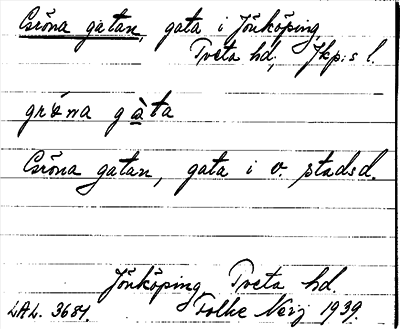 Gröna gatan, gata i Jönköping,
Tveta hd, Jkp:s l.
gröna gàta
Gröna gatan, gata i v. stadsd.
Jönköping Tveta hd.
LAL. 3684. Folke Nerj 1939.